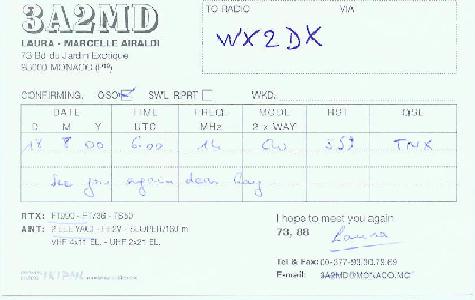 3A2MD
TO RADIO VIA
LAURA - MARCELLE AIRALDI
WX2DX
73 Bd du Jardin Exotique
MONACO
CONFIRMING. QSO SWL RPRT WKD.
DATE TIME FREQ. MODE RST QSL
D M Y UTC MHz 2 x WAY
18 8 00 6:00 14 CW 559 TNX
See you again dear Ray
RTX: FT990 - FT736 - TS50
I hope to meet you again
VHF 4x11 EL. - UHF 2x21 EL.
73, 88 Laura
Tel & Fax: 00-377-93.30.79.69
E-mail: 3A2MD@MONACO.MC